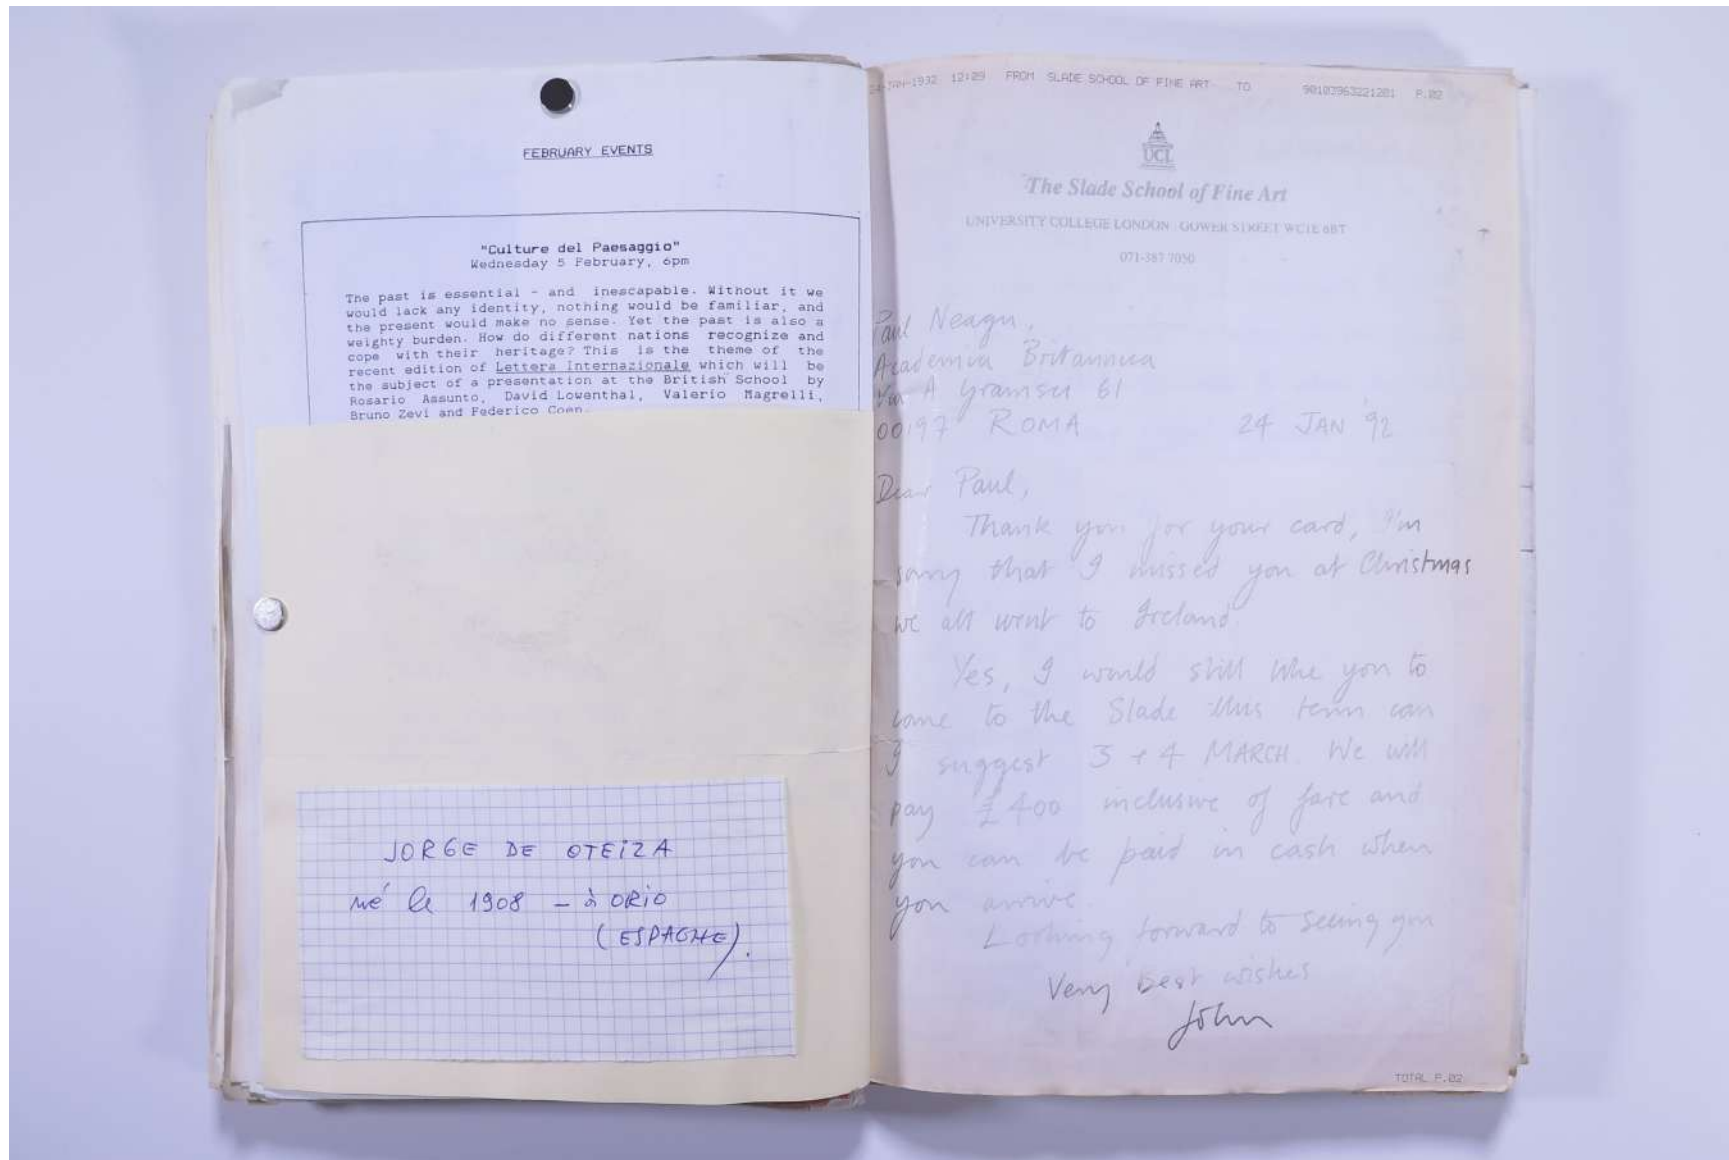 FEBRUARY EVENTS
"Culture del Paesaggio"
Wednesday 5 February, 6pm
The past is essential - and inescapable. Without it we
would lack any identity, nothing would be familiar, and
the present would make no sense. Yet the past is also a
weighty burden. How do different nations recognize and
cope with their heritage? This is the theme of the
recent edition of Lettera Internazionale which will be
the subject of a presentation at the British School by
Rosario Assunto, David Lowenthal, Valerio Magrelli,
Bruno Zevi and Federico Coen.
JORGE DE OTEIZA
né le 1908 - à ORIO
(ESPAGNE).
24-JAN-1932 12:09 FROM SLADE SCHOOL OF FINE ART TO 90103963221201 P.02
UCL
The Slade School of Fine Art
UNIVERSITY COLLEGE LONDON GOWER STREET WC1E 6BT
071-387 7050
Paul Neagu,
Academia Britannica
Via A Gramsci 61
00197 ROMA 24 JAN '92
Dear Paul,
Thank you for your card, I'm
sorry that I missed you at Christmas
we all went to Ireland.
Yes, I would still like you to
come to the Slade this term can
I suggest 3 + 4 MARCH. We will
pay £400 inclusive of fare and
you can be paid in cash when
you arrive.
Looking forward to seeing you
Very best wishes
John
TOTAL P.02